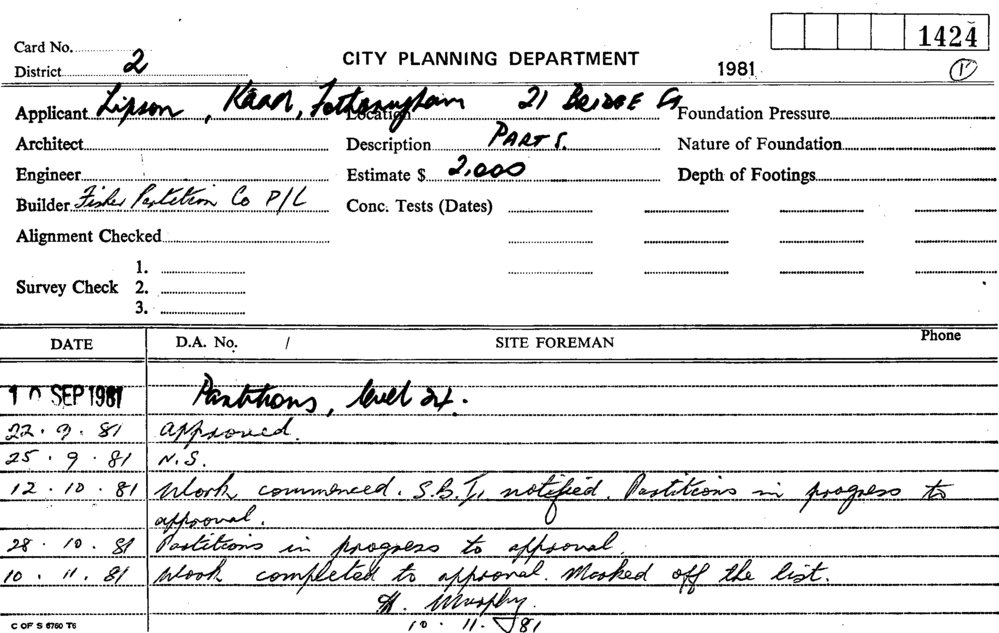 1424
Card No.
CITY PLANNING DEPARTMENT
District 2
1981
1
Applicant Lipson, Kaad, Fotheringham Location 21 BRIDGE St Foundation Pressure
Architect Description PART S. Nature of Foundation
Engineer Estimate $ 2,000 Depth of Footings
Builder Fisher Partition Co P/L Conc. Tests (Dates)
Alignment Checked
1.
Survey Check 2.
3.
DATE D.A. No. / SITE FOREMAN Phone
10 SEP 1981 Partitions, level 24.
22.9.81 approved.
25.9.81 N.S.
12.10.81 Work commenced. S.B.I. notified. Partitions in progress to
approval.
28.10.81 Partitions in progress to approval.
10.11.81 Work completed to approval. Marked off the list.
H. Murphy.
10.11.81
C OF S 6760 T6